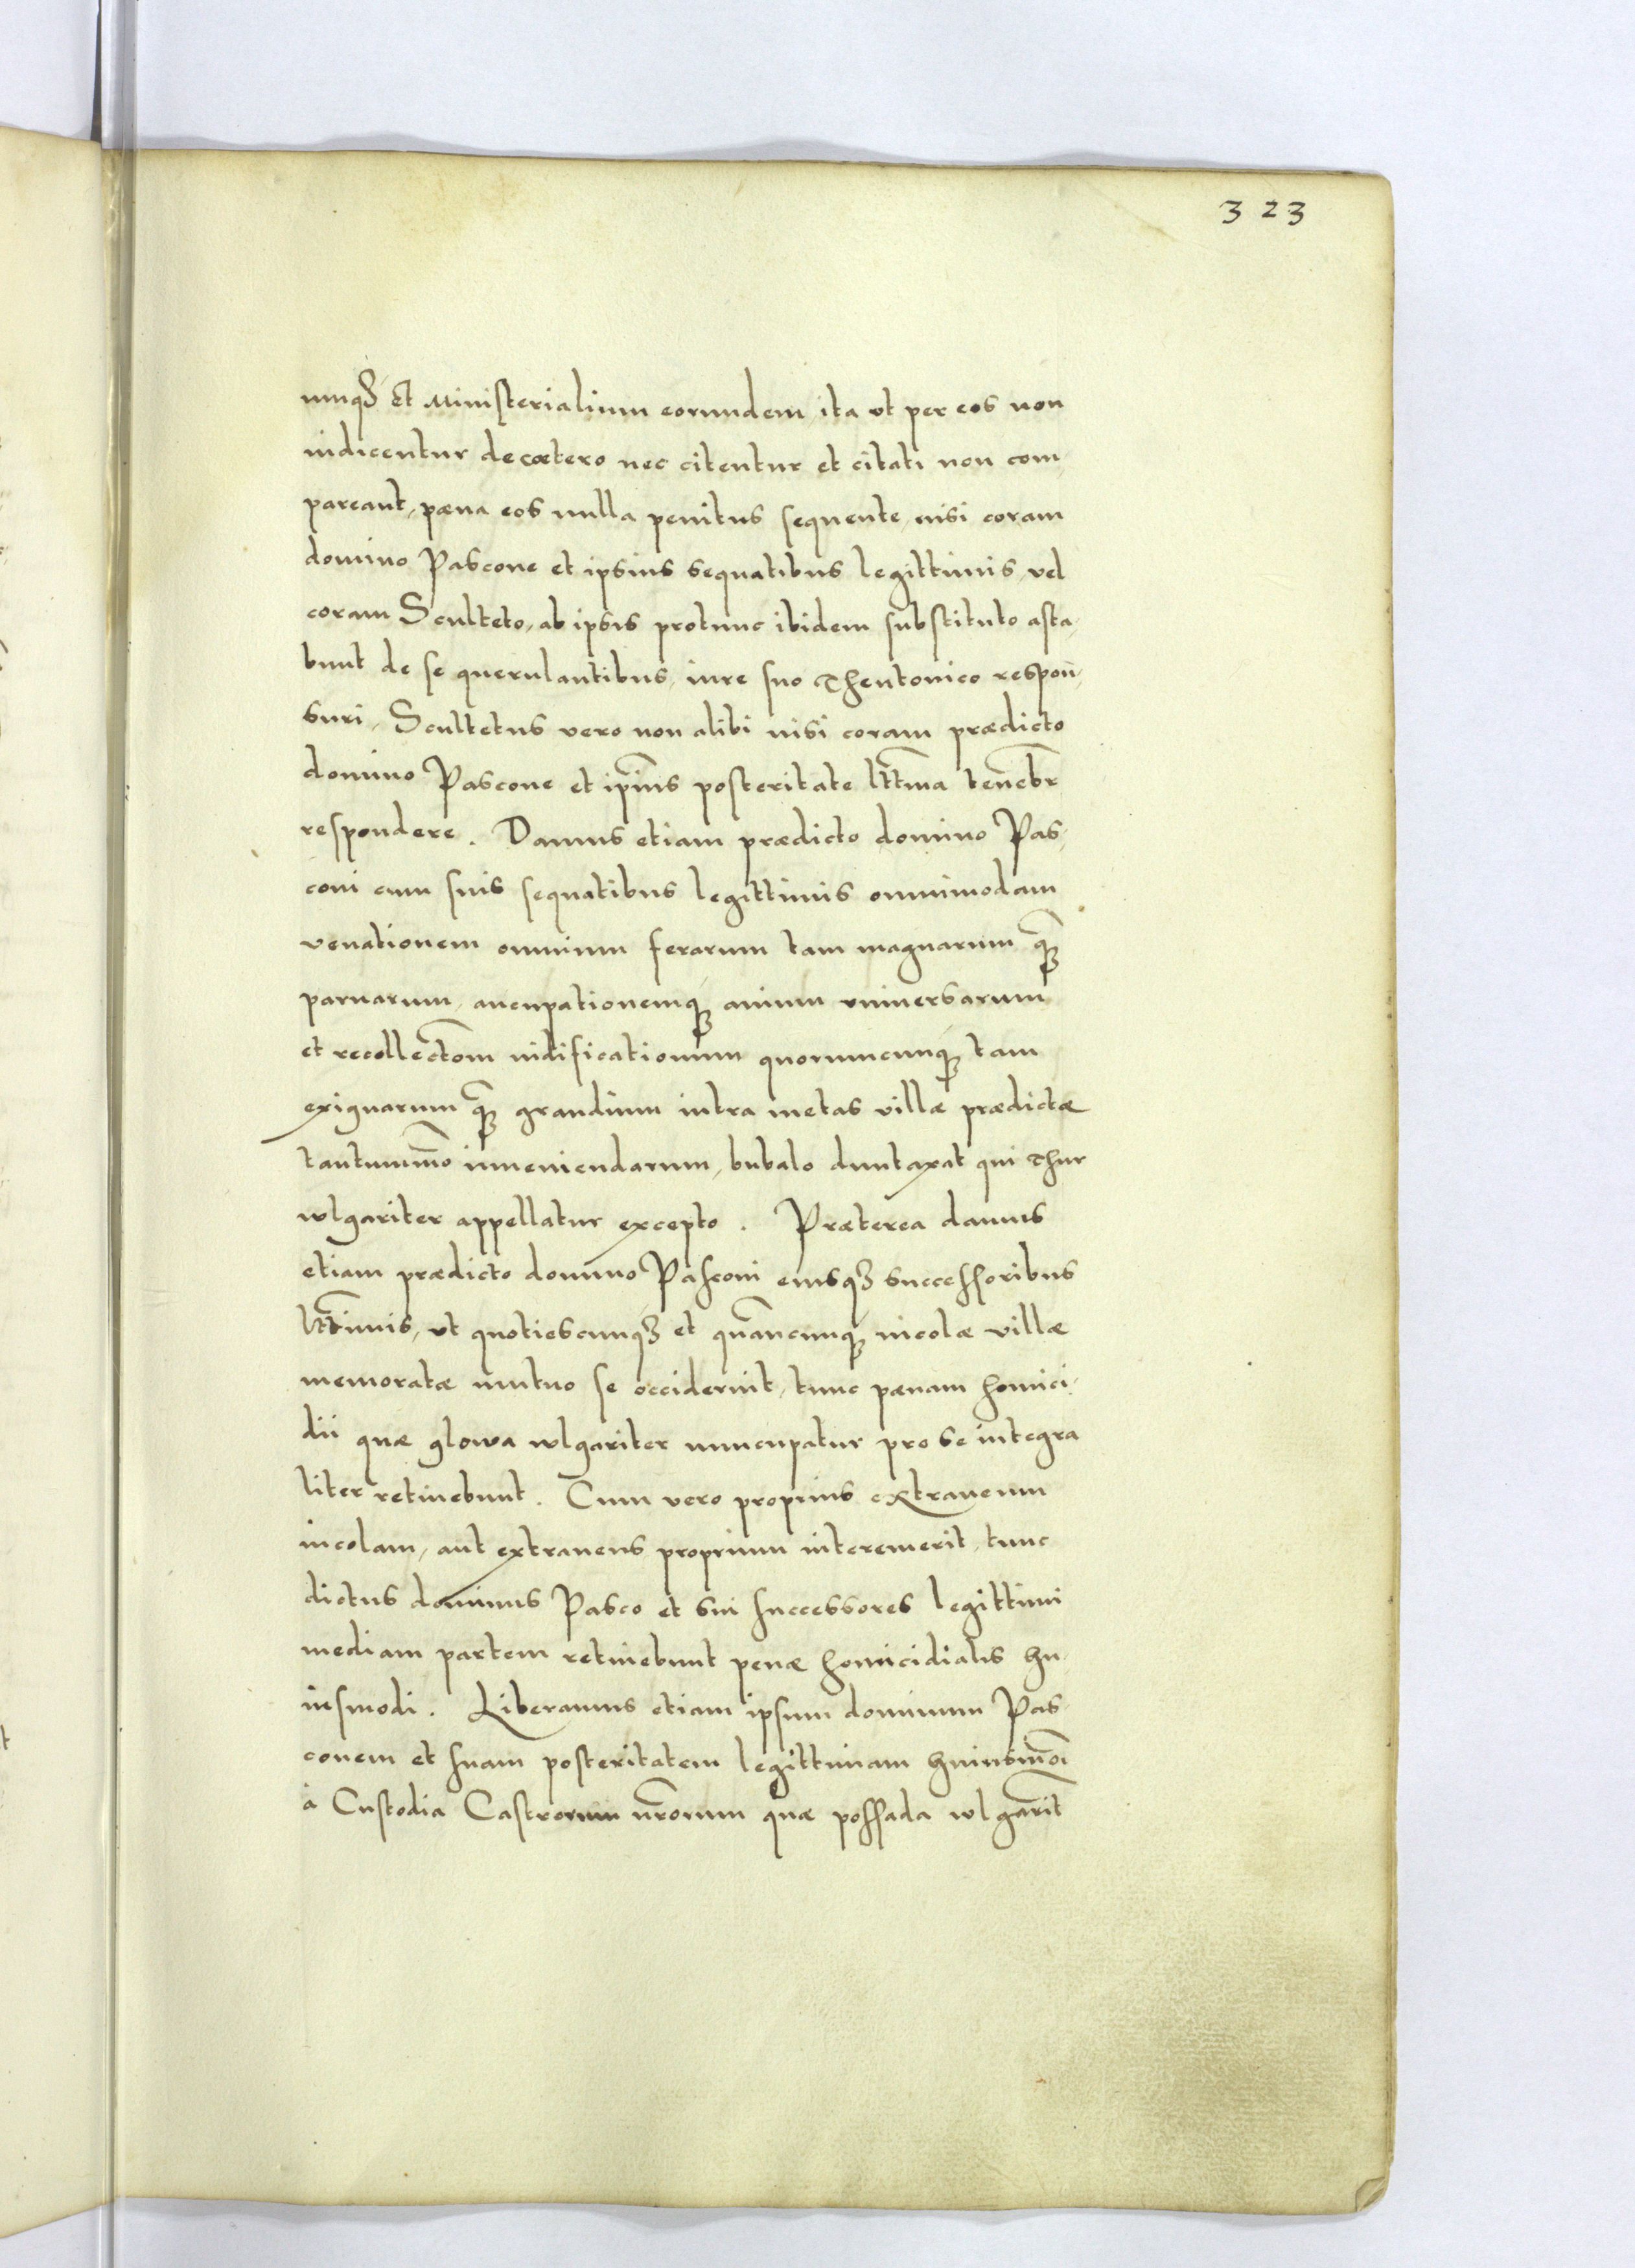 323
umq₃ et Ministerialium eorundem ita vt per eos non
iudicentur decætero nec citentur et citati non com-
pareant, pæna eos nulla penitus sequente, nisi coram
domino Pascone et ipsius sequatibus legittimis, vel
coram Sculteto, ab ipsis protunc ibidem substituto asta-
bunt de se querulantibus, iure suo Theutonico respon-
suri, Scultetus vero non alibi nisi coram prædicto
domino Pascone et ip̄ius posteritate lt̄tma teneb̄r
respondere. Damus etiam prædicto domino Pas-
coni cum suis sequatibus legittimis omnimodam
venationem omnium ferarum tam magnarum q̄ꝫ
paruarum, aucupationemqꝫ auium vniuersarum
et recollect̄om nidificationum quorumcunqꝫ tam
exiguarum q̄ꝫ grandium intra metas villæ prædictæ
tantumm̄o inueniendarum, bubalo duntaxat qui Thur
wlgariter appellatur excepto. Præterea damus
etiam prædicto domino Pasconi eiusq₃ successoribus
lt̄timis, vt quotiescunq₃ et quan̄cunqꝫ incolæ villæ
memoratæ mutuo se occiderint, tunc pænam homici-
dii quæ glowa wlgariter nuncupatur pro se integra
liter retinebunt. Cum vero proprius extraneum
incolam, aut extraneus proprium interemerit, tunc
dictus dominus Pasco et sui successores legittimi
mediam partem retinebunt penæ homicidialis hu-
iusmodi. Liberamus etiam ipsum dominum Pas-
conem et suam posteritatem legittimam huiusm̄oi
à Custodia Castrorum nr̄orum quæ possada wlgarit̄